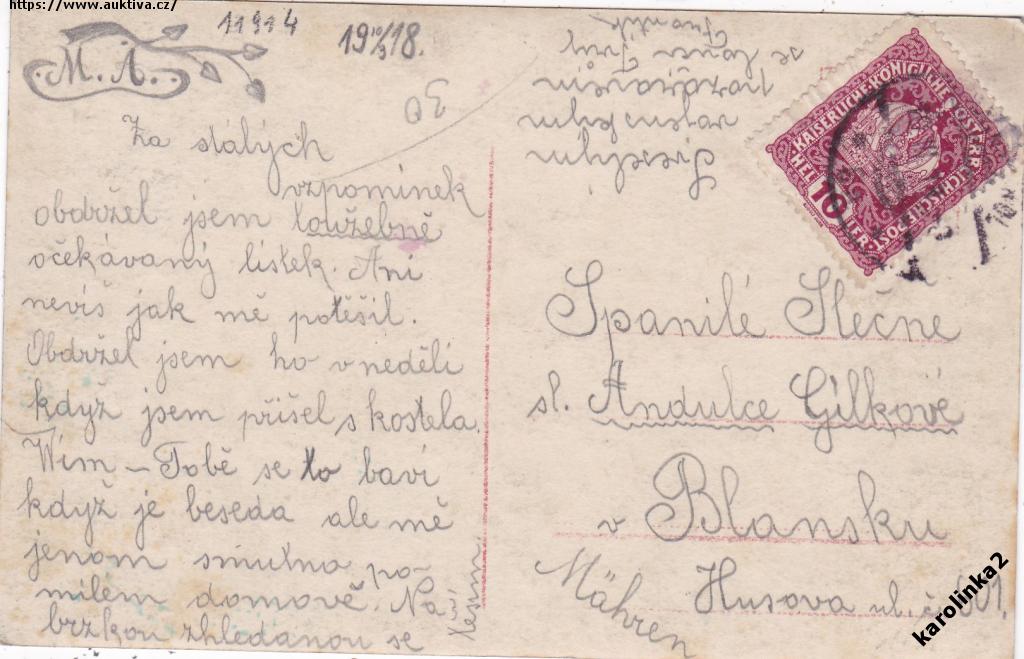 https://www.auktiva.cz/
11914
19 10/3 18.
M. A.
Za stálých
vzpomínek
obdržel jsem toužebně
očekávaný lístek. Ani
nevíš jak mě potěšil.
Obdržel jsem ho v neděli
když jsem přišel s kostela.
Wím – Tobě se to baví
když je beseda ale mě
jenom smutno po
milém domově. Na
brzkou zhledanou se
těší
KAISERLICHE KÖNIGLICHE ÖSTERR
HELLER 10
Spanilé Slečne
sl. Andulce Gilkově
v Blansku
Mähren
Husova ul. č. 601.
karolinka2